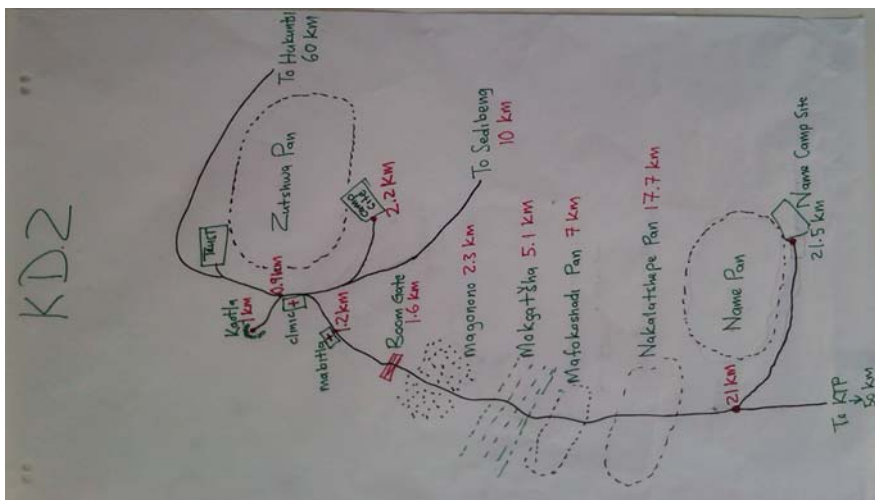 KD.2
To Hukuntsi
60 km
TRUST
Zutshwa Pan
Kgotla
1km
0.9km
clinic
camp
site
2.2km
mabitla
1.2km
To Sedibeng
10 km
Boom Gate
1.6 km
magonono 2.3 km
Mokgatšha 5.1 km
Mafokoshadi Pan 7 km
Nakalatshepe Pan 17.7 km
Name Pan
21km
Name Camp Site
21.5 km
To KTP
50 km